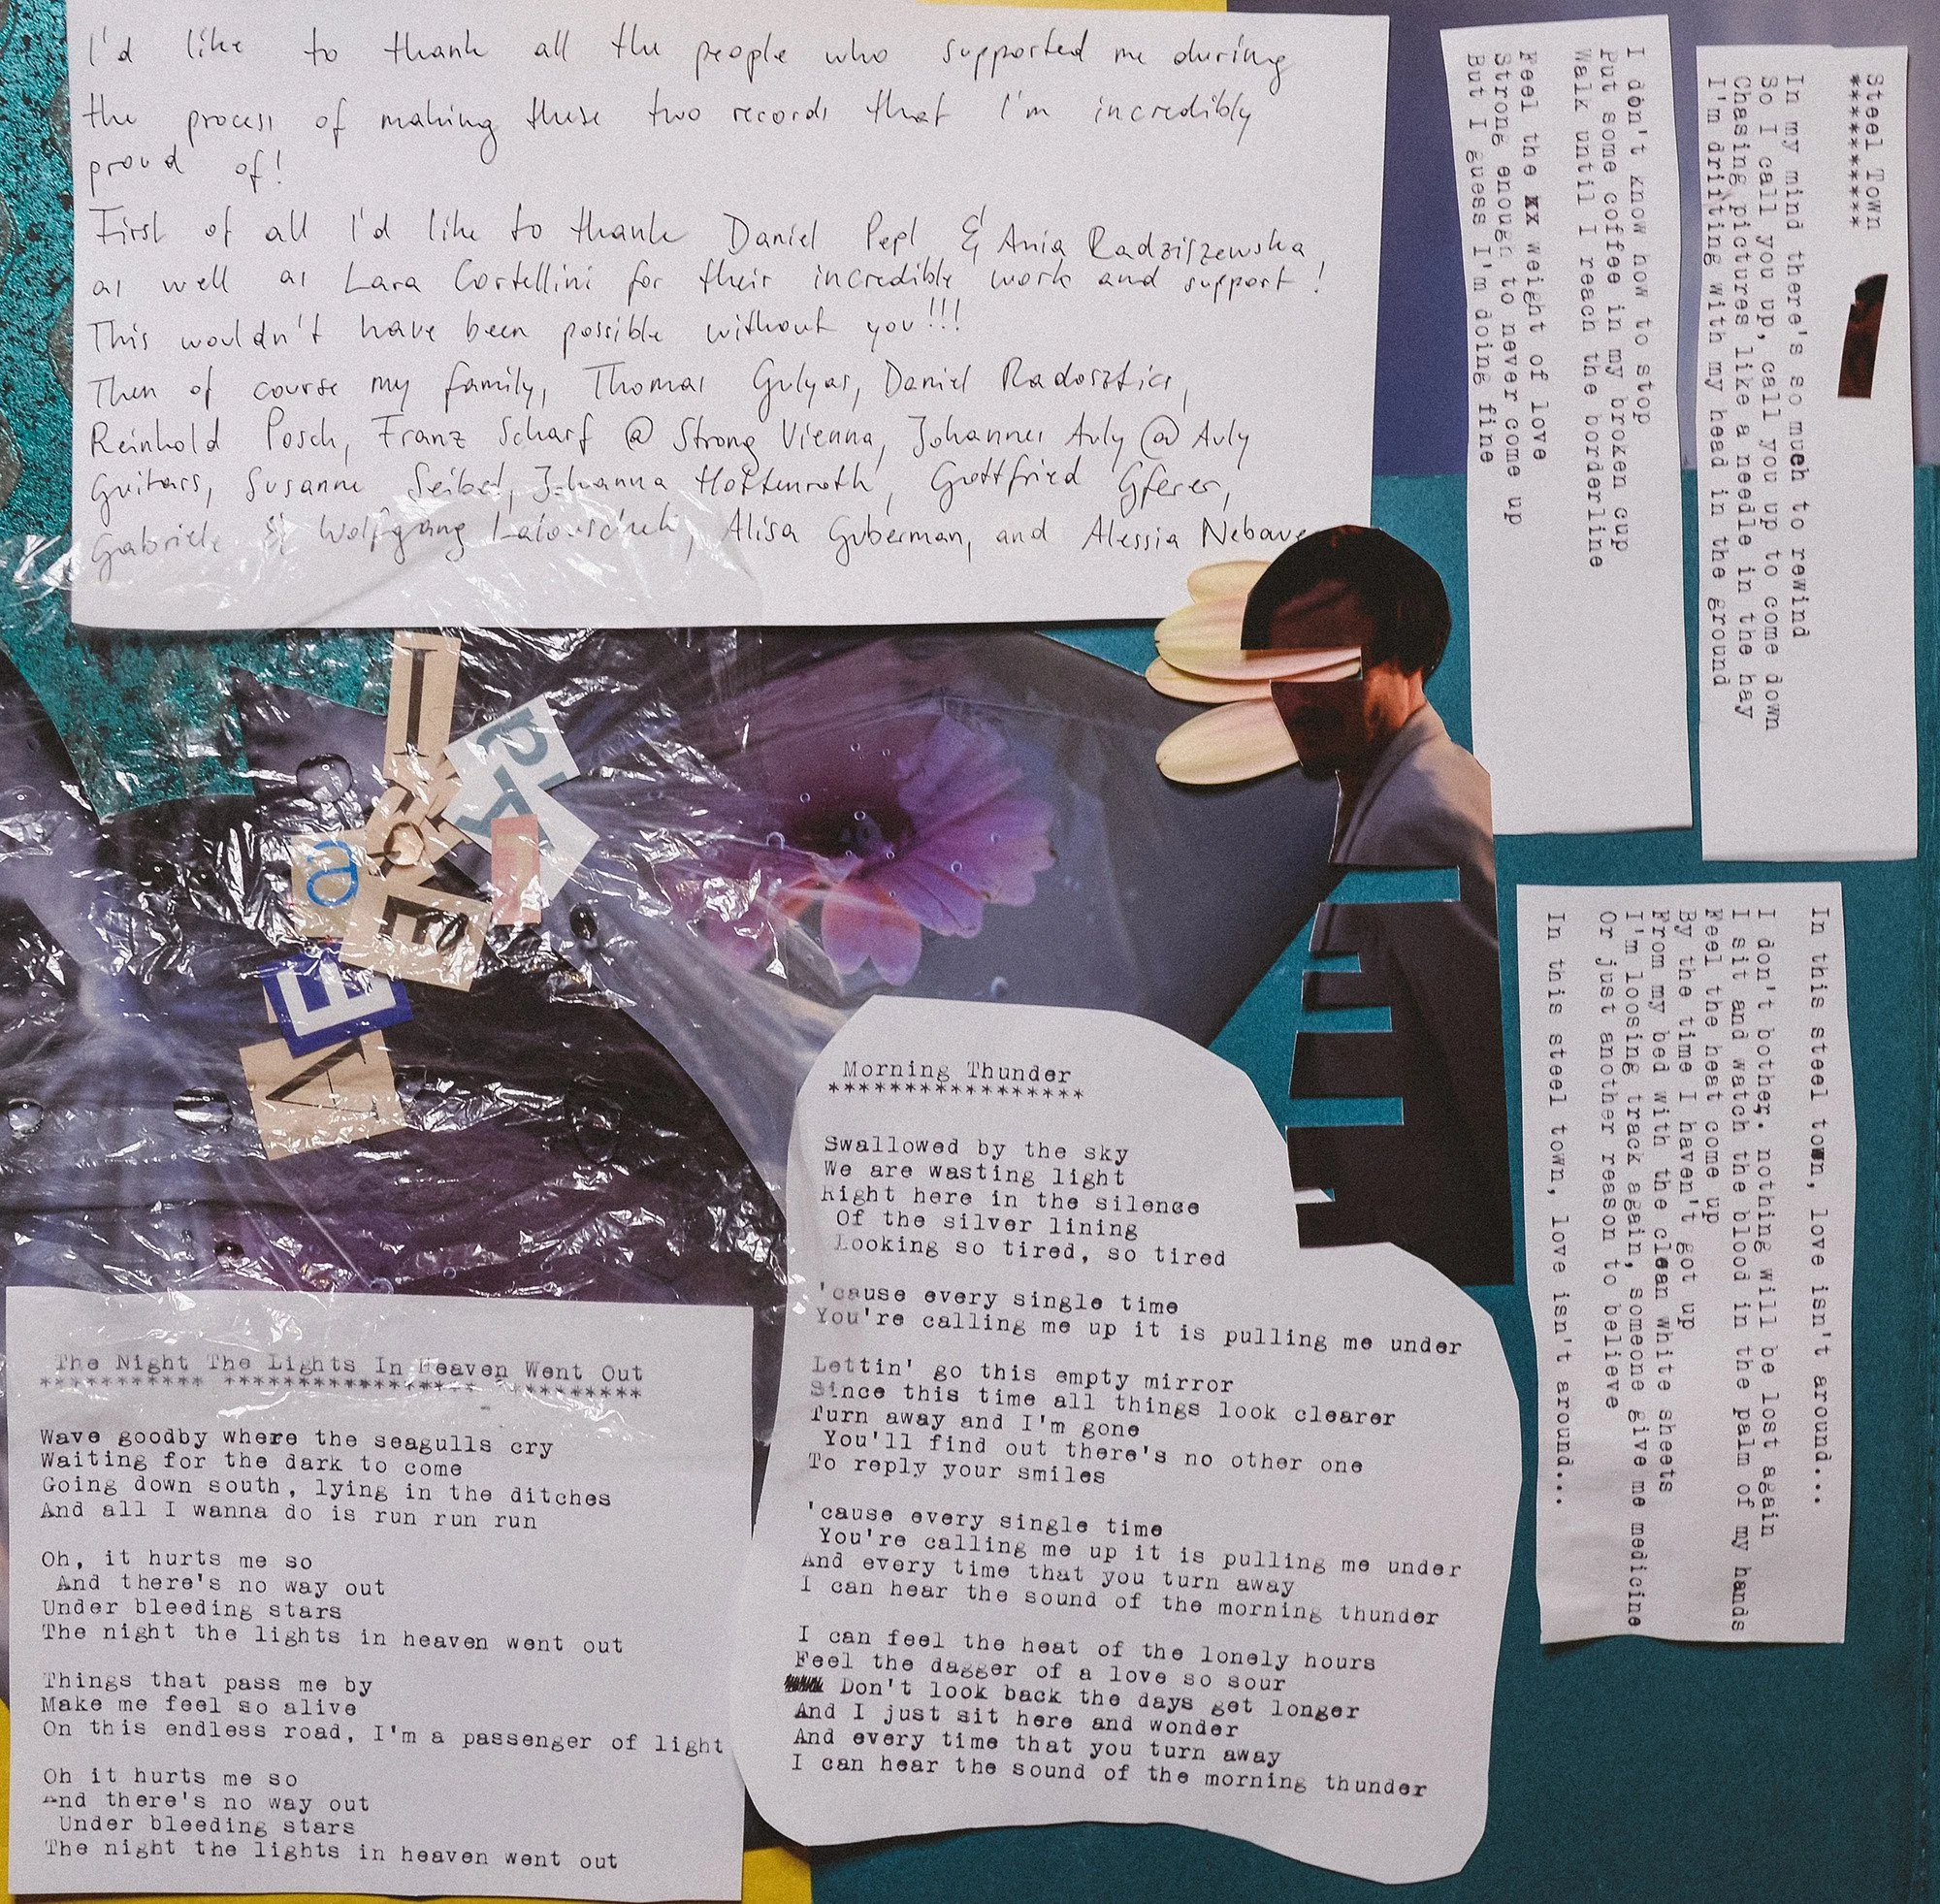 I'd like to thank all the people who supported me during
the process of making these two records that I'm incredibly
proud of!
First of all I'd like to thank Daniel Pepl & Ania Radziszewska
as well as Lara Cortellini for their incredible work and support!
This wouldn't have been possible without you!!!
Then of course my family, Thomas Gulyas, Daniel Radosztics,
Reinhold Posch, Franz Scharf @ Strong Vienna, Johannes Auly @ Auly
Guitars, Susanne Seibel, Johanna Hottenroth, Gottfried Gferer,
Gabriele & Wolfgang Lalouschek, Alisa Guberman, and Alessia
Steel Town
**********
In my mind there's so much to rewind
So I call you up, call you up to come down
Chasing pictures like a needle in the hay
I'm drifting with my head in the ground
I don't know how to stop
Put some coffee in my broken cup
Walk until I reach the borderline
Feel the xx weight of love
Strong enough to never come up
But I guess I'm doing fine
In this steel town, love isn't around...
I don't bother, nothing will be lost again
I sit and watch the blood in the palm of my hands
Feel the heat come up
By the time I haven't got up
From my bed with the clean white sheets
I'm loosing track again, someone give me medicine
Or just another reason to believe
In this steel town, love isn't around...
I
p
a
E
E
A
Morning Thunder
*****************
Swallowed by the sky
We are wasting light
Right here in the silence
Of the silver lining
Looking so tired, so tired
'cause every single time
You're calling me up it is pulling me under
Lettin' go this empty mirror
Since this time all things look clearer
Turn away and I'm gone
You'll find out there's no other one
To reply your smiles
'cause every single time
You're calling me up it is pulling me under
And every time that you turn away
I can hear the sound of the morning thunder
I can feel the heat of the lonely hours
Feel the dagger of a love so sour
Don't look back the days get longer
And I just sit here and wonder
And every time that you turn away
I can hear the sound of the morning thunder
The Night The Lights In Heaven Went Out
*********** ***************** *********
Wave goodby where the seagulls cry
Waiting for the dark to come
Going down south, lying in the ditches
And all I wanna do is run run run
Oh, it hurts me so
And there's no way out
Under bleeding stars
The night the lights in heaven went out
Things that pass me by
Make me feel so alive
On this endless road, I'm a passenger of light
Oh it hurts me so
And there's no way out
Under bleeding stars
The night the lights in heaven went out